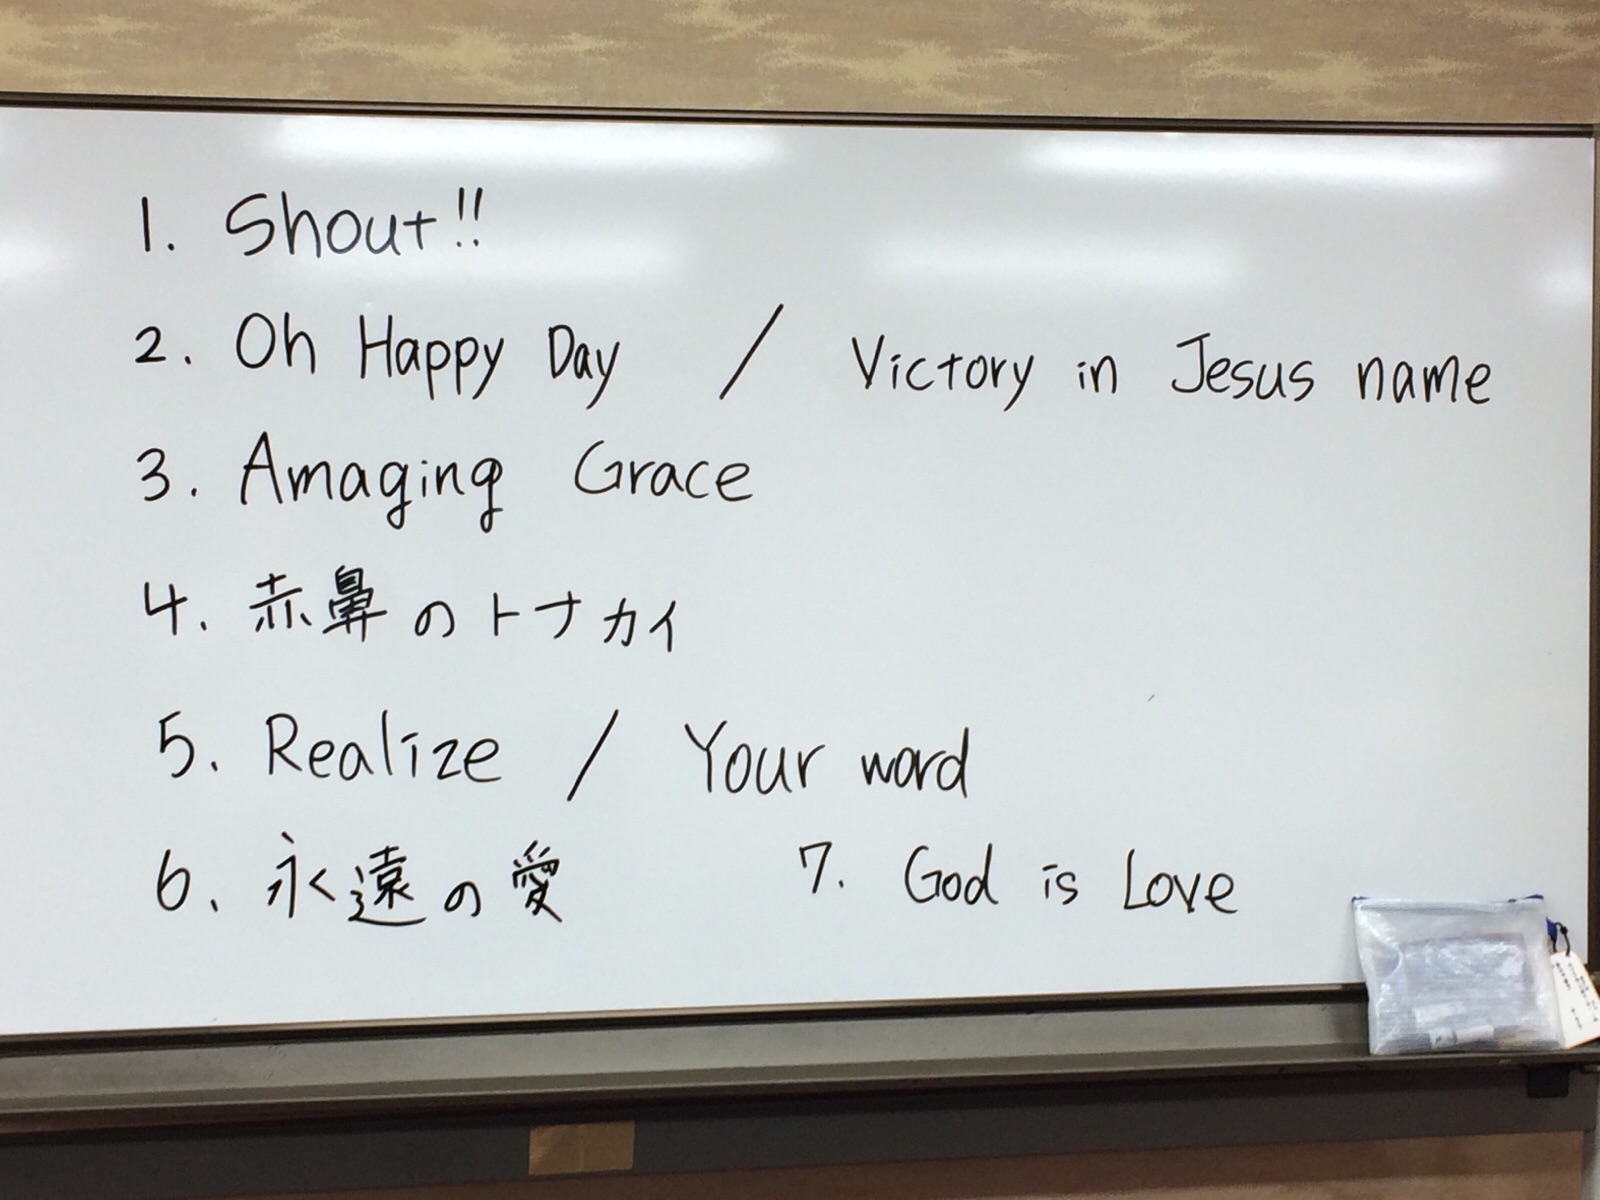 1. Shout!!
2. Oh Happy Day / Victory in Jesus name
3. Amaging Grace
4. 赤鼻のトナカイ
5. Realize / Your word
6. 永遠の愛 7. God is Love